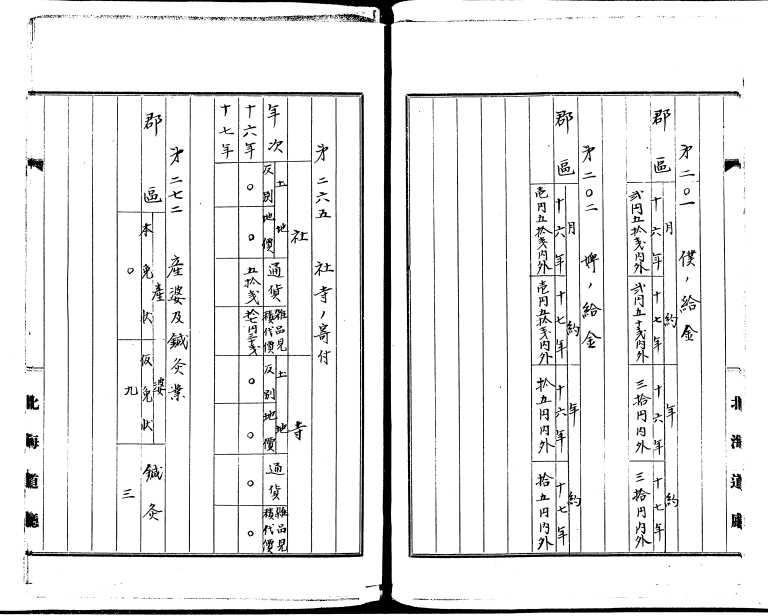 第二〇一　僕ノ給金
郡區
月約
十六年
十七年
年約
十六年
十七年
弐円五拾戋内外
弐円五十戋内外
三拾円内外
三拾円内外
第二〇二　婢ノ給金
郡區
月約
十六年
十七年
年約
十六年
十七年
壱円五拾戋内外
壱円五拾戋内外
拾五円内外
拾五円内外
北海道廳
第二六五　社寺ノ寄付
年次
社
寺
土地
反別
地價
通貨
雑品見積代價
土地
反別
地價
通貨
雑品見積代價
十六年
〇
〇
五拾戋
〇
〇
〇
〇
十七年
第二七二　産婆及鍼灸業
郡區
産婆
本免状
仮免状
鍼灸
〇
九
三
北海道廳